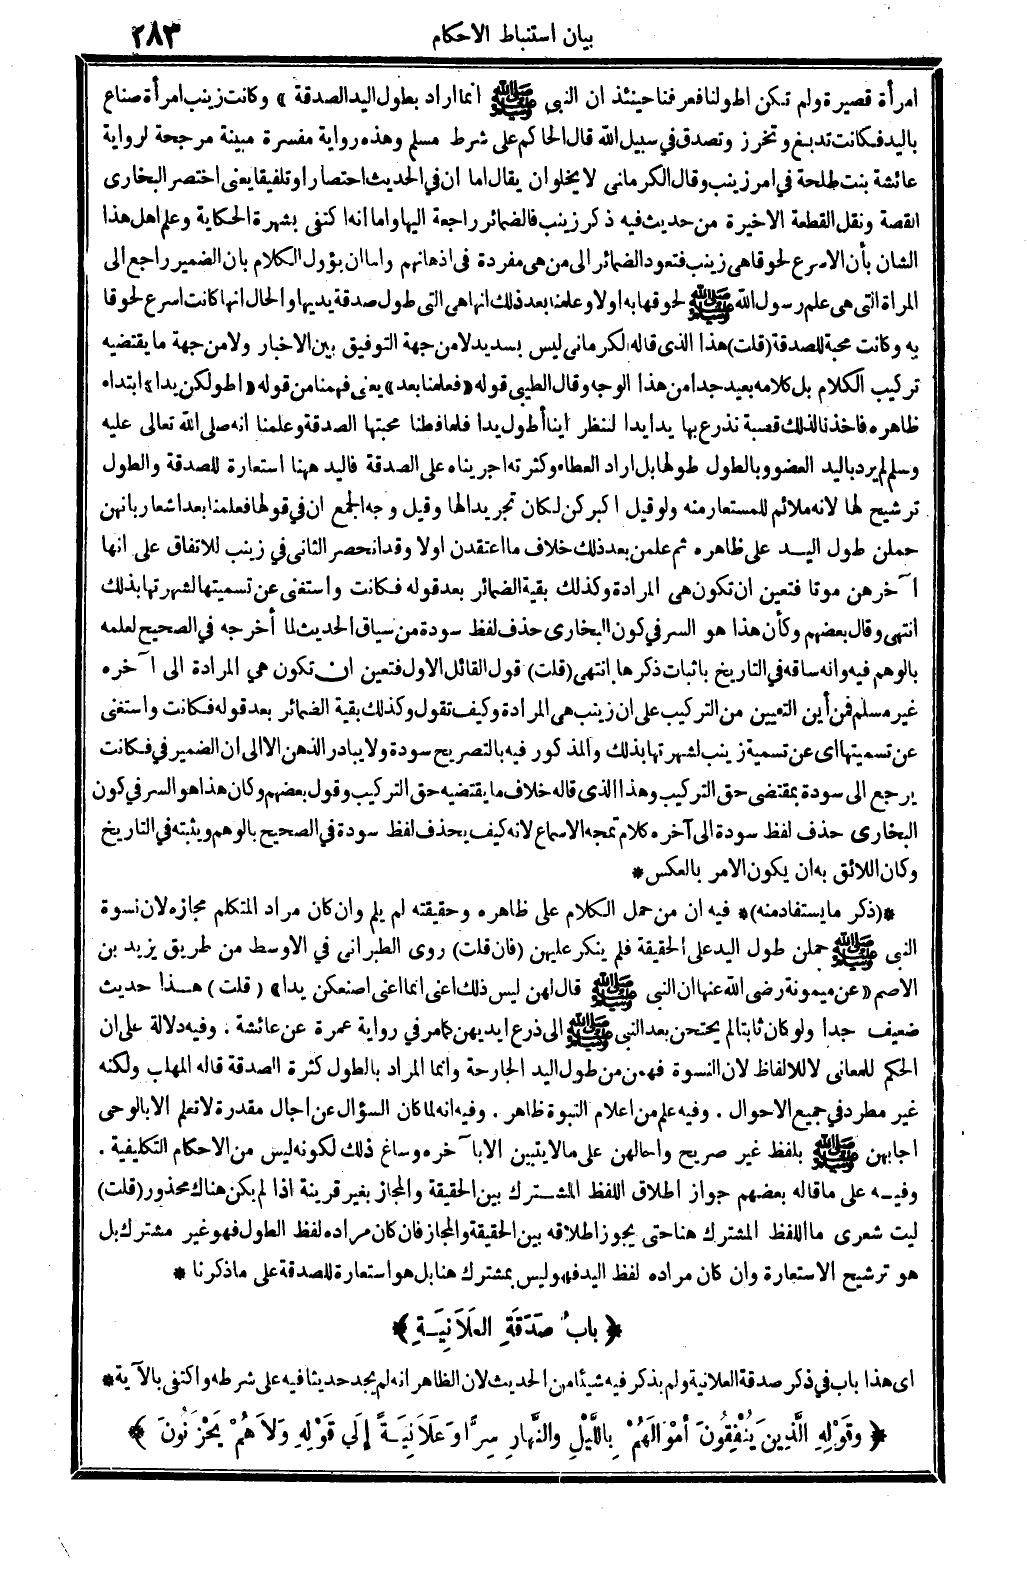 بيان استنباط الاحكام ٢٨٣
امرأة قصيرة ولم تكن اطولنا فعرفنا حينئذ ان النبي ﷺ انما اراد بطول اليد الصدقة » وكانت زينب امرأة صناع
باليد فكانت تدبغ وتخرز وتصدق في سبيل الله قال الحاكم على شرط مسلم وهذه رواية مفسرة مبينة مرجحة لرواية
عائشة بنت طلحة في امر زينب وقال الكرماني لا يخلو ان يقال اما ان في الحديث اختصارا وتلفيقا يعنى اختصر البخارى
القصة ونقل القطعة الاخيرة من حديث فيه ذكر زينب فالضمائر راجعة اليها واما انه اكتفى بشهرة الحكاية وعلم اهل هذا
الشان بأن الاسرع لحوقا هي زينب فتعود الضمائر الى من هي مفردة في اذهانهم واما ان يؤول الكلام بان الضمير راجع الى
المراة التى هى علم رسول الله ﷺ لحوقها به اولا وعلمنا بعد ذلك انها هي التى طول صدقة يديها والحال انها كانت اسرع لحوقا
به وكانت محبة للصدقة (قلت) هذا الذى قاله الكرماني ليس بسديد لا من جهة التوفيق بين الاخبار ولا من جهة ما يقتضيه
تركيب الكلام بل كلامه بعيد جدا من هذا الوجه وقال الطيبى قوله «فعلمنا بعد» يعنى فهمنا من قوله «اطولكن يدا» ابتداء
ظاهره فاخذنا لذلك قصبة نذرع بها يدا يدا لننظر اينا أطول يدا فلما فطنا محبتها الصدقة وعلمنا انه صلى الله تعالى عليه
وسلم لم يرد باليد العضو وبالطول طولها بل اراد العطاء وكثرته اجريناه على الصدقة فاليد ههنا استعارة للصدقة والطول
ترشيح لها لانه ملائم للمستعار منه ولو قيل اكبركن لكان تجريدا لها وقيل وجه الجمع ان في قولها فعلمنا بعد اشعار بانهن
حملن طول اليـد على ظاهره ثم علمن بعد ذلك خلاف ما اعتقدن اولا وقد انحصر الثانى في زينب للاتفاق على انها
آخرهن موتا فتعين ان تكون هى المرادة وكذلك بقية الضمائر بعد قوله فكانت واستغنى عن تسميتها لشهرتها بذلك
انتهى وقال بعضهم وكأن هذا هو السر في كون البخارى حذف لفظ سودة من سياق الحديث لما أخرجه في الصحيح لعلمه
بالوهم فيه وانه ساقه في التاريخ باثبات ذكرها انتهى (قلت) قول القائل الاول فتعين ان تكون هي المرادة الى آخره
غير مسلم فمن أين التعيين من التركيب على ان زينب هى المرادة وكيف تقول وكذلك بقية الضمائر بعد قوله فكانت واستغنى
عن تسميتها اى عن تسمية زينب لشهرتها بذلك والمذكور فيه بالتصريح سودة ولا يبادر الذهن الا الى ان الضمير في فكانت
يرجع الى سودة بمقتضى حق التركيب وهذا الذى قاله خلاف ما يقتضيه حق التركيب وقول بعضهم وكان هذا هو السر في كون
البخارى حذف لفظ سودة الى آخره كلام تمجه الاسماع لانه كيف يحذف لفظ سودة في الصحيح بالوهم ويثبته في التاريخ
وكان اللائق به ان يكون الامر بالعكس *
*(ذكر ما يستفاد منه)* فيه ان من حمل الكلام على ظاهره وحقيقته لم يلم وان كان مراد المتكلم مجازه لان نسوة
النبى ﷺ حملن طول اليد على الحقيقة فلم ينكر عليهن (فان قلت) روى الطبرانى في الاوسط من طريق يزيد بن
الاصم «عن ميمونة رضى الله عنها ان النبي ﷺ قال لهن ليس ذلك اعنى انما اعنى اصنعكن يدا» (قلت) هـذا حديث
ضعيف جدا ولو كان ثابتا لم يحتجن بعد النبى ﷺ الى ذرع ايديهن كما مر في رواية عمرة عن عائشة . وفيه دلالة على ان
الحكم للمعانى لا للالفاظ لان النسوة فهمن من طول اليد الجارحة وانما المراد بالطول كثرة الصدقة قاله المهلب ولكنه
غير مطرد في جميع الاحوال . وفيه علم من اعلام النبوة ظاهر . وفيه انه لما كان السؤال عن اجال مقدرة لا تعلم الا بالوحى
اجابهن ﷺ بلفظ غير صريح واحالهن على ما لا يتبين الا بآخره وساغ ذلك لكونه ليس من الاحكام التكليفية .
وفيـه على ما قاله بعضهم جواز اطلاق اللفظ المشترك بين الحقيقة والمجاز بغير قرينة اذا لم يكن هناك محذور (قلت)
ليت شعرى ما اللفظ المشترك هنا حتى يجوز اطلاقه بين الحقيقة والمجاز فان كان مراده لفظ الطول فهو غير مشترك بل
هو ترشيح الاستعارة وان كان مراده لفظ اليد فهو ليس بمشترك هنا بل هو استعارة للصدقة على ما ذكرنا *
﴿ بابُ صَدَقَةِ العَلَانِيَةِ ﴾
اى هذا باب في ذكر صدقة العلانية ولم يذكر فيه شيئا من الحديث لان الظاهر انه لم يجد حديثا فيه على شرطه واكتفى بالآية *
﴿ وقَوْلِهِ الَّذِينَ يُنْفِقُونَ أمْوَالَهُمْ بِاللَّيْلِ والنَّهارِ سِرًّا وَعَلَانِيَةً إِلَى قَوْلِهِ وَلَا هُمْ يَحْزَنُونَ ﴾